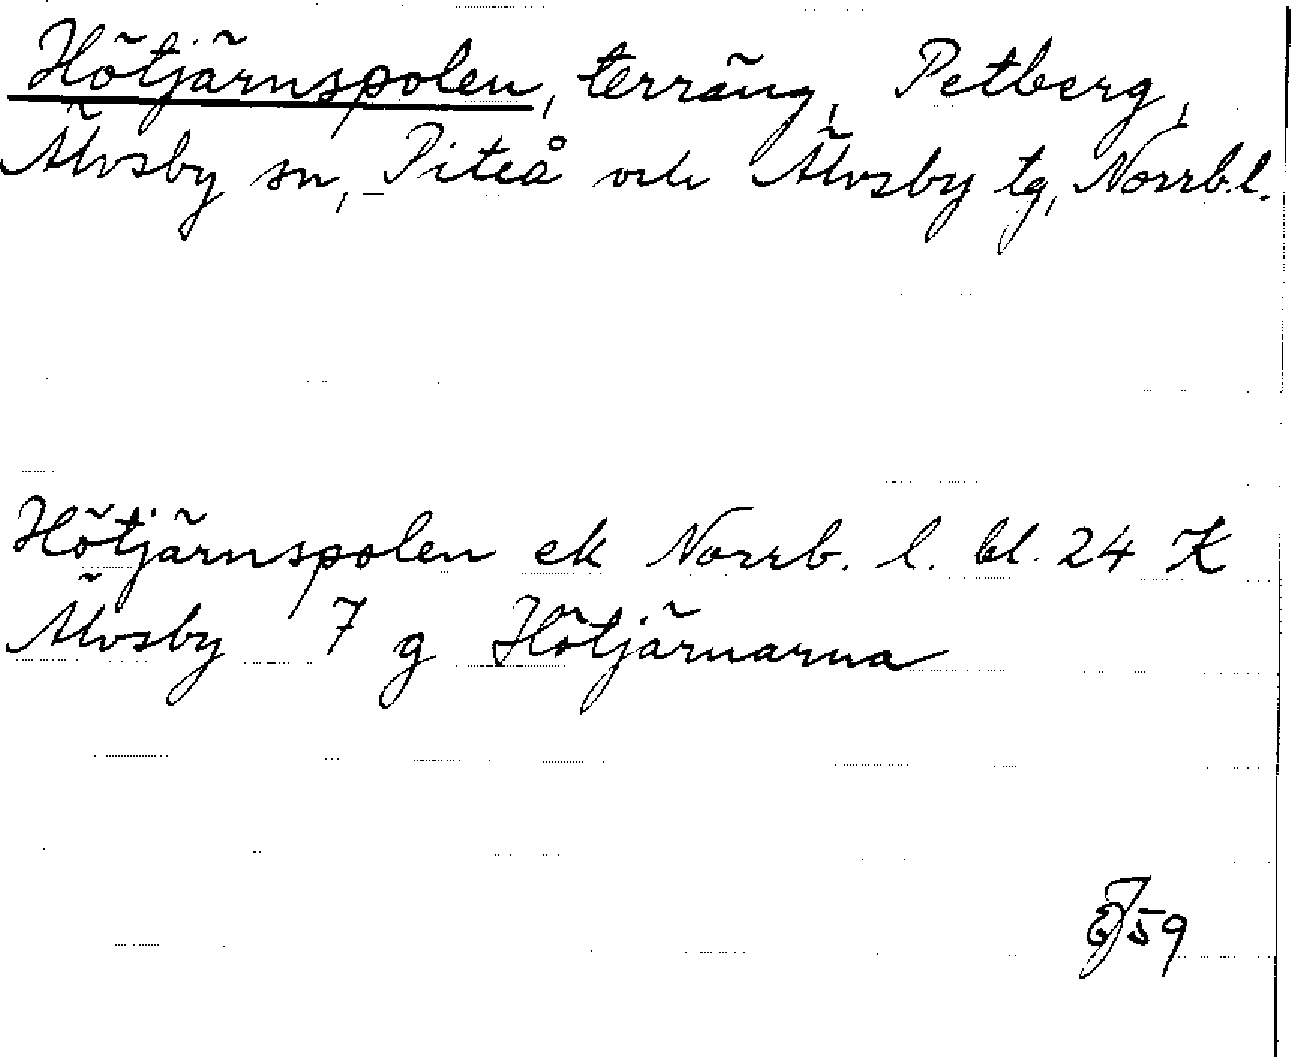 Hötjärnspolen, terräng, Petberg,
Älvsby sn, Piteå och Älvsby tg, Norrb.l.
Hötjärnspolen ek Norrb. l. bl. 24 K
Älvsby 7 g Hötjärnarna
59